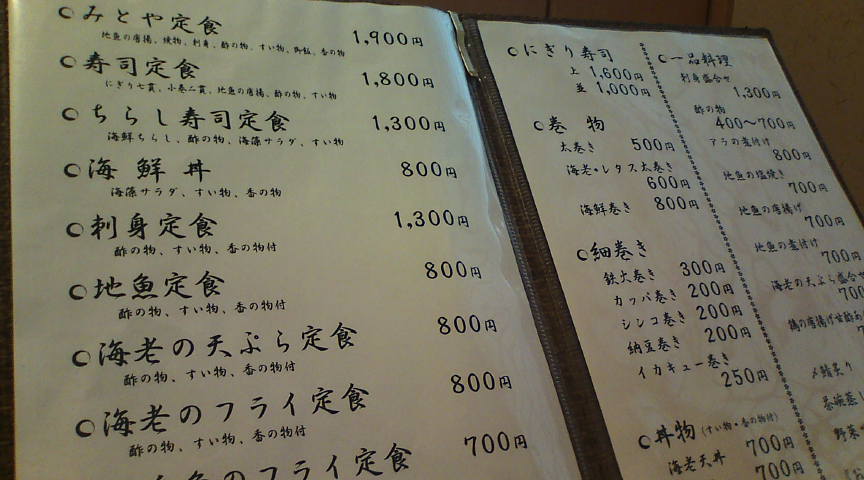 ○みとや定食 1,900円
地魚の唐揚、焼物、刺身、酢の物、すい物、御飯、香の物
○寿司定食 1,800円
にぎり七貫、小巻二貫、地魚の唐揚、酢の物、すい物
○ちらし寿司定食 1,300円
海鮮ちらし、酢の物、海藻サラダ、すい物
○海鮮丼 800円
海藻サラダ、すい物、香の物
○刺身定食 1,300円
酢の物、すい物、香の物付
○地魚定食 800円
酢の物、すい物、香の物付
○海老の天ぷら定食 800円
酢の物、すい物、香の物付
○海老のフライ定食 800円
酢の物、すい物、香の物付
魚のフライ定食 700円
○にぎり寿司
上 1,600円
並 1,000円
○巻物
太巻き 500円
海老・レタス太巻き
600円
海鮮巻き 800円
○細巻き
鉄火巻き 300円
カッパ巻き 200円
シンコ巻き 200円
納豆巻き 200円
イカキュー巻き
250円
○丼物(すい物・香の物付)
海老天丼 700円
700円
○一品料理
刺身盛合せ
1,300円
酢の物
400〜700円
アラの煮付け
800円
地魚の塩焼き
700円
地魚の唐揚げ
700円
地魚の煮付け
700円
海老の天ぷら盛合せ
700
鶏の唐揚げ甘酢あ
〆鯖炙り
茶碗蒸し
野菜